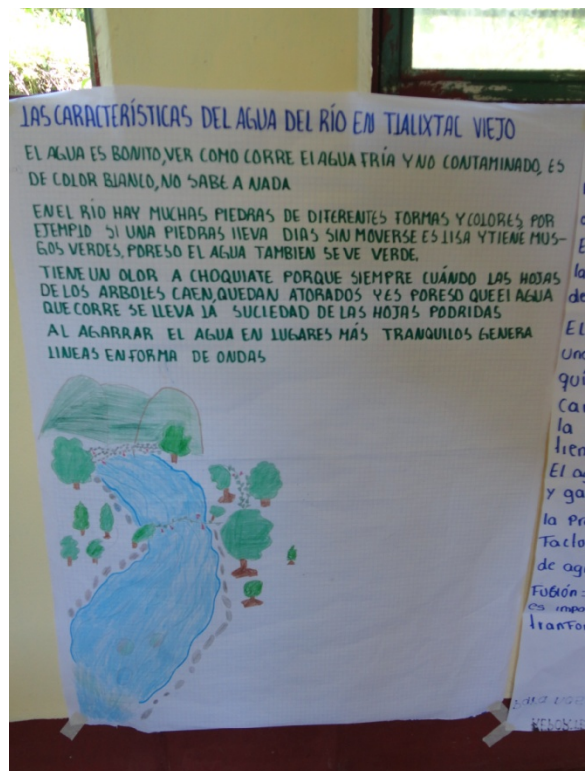 LAS CARACTERÍSTICAS DEL AGUA DEL RÍO EN TLALIXTAC VIEJO
EL AGUA ES BONITO, VER COMO CORRE El AGUA FRÍA Y NO CONTAMINADO, ES
DE COLOR BlANCO, NO SABE A NADA
EN EL RÍO HAY MUCHAS PIEDRAS DE DIFERENTES FORMAS Y COLORES, POR
EJEMPlO SI UNA PIEDRAS llEVA DIAS SIN MOVERSE ES lISA Y TIENE MUS-
GOS VERDES, PORESO EL AGUA TAMBIEN SE VE VERDE.
TIENE UN OLOR A CHOQUIATE PORQUE SIEMPRE CUÁNDO LAS HOJAS
DE LOS ARBOLES CAEN, QUEDAN ATORADOS Y ES PORESO QUE El AGUA
QUE CORRE SE LLEVA LA SUCIEDAD DE LAS HOJAS PODRIDAS
AL AGARRAR EL AGUA EN LUGARES MÁS TRANQUILOS GENERA
LINEAS EN FORMA DE ONDAS
la
de
EL
una
qui
Car
la
tien
El ag
y ga
la pr
Taclo
de ag
FUSIÓN:
es impo
tranfor